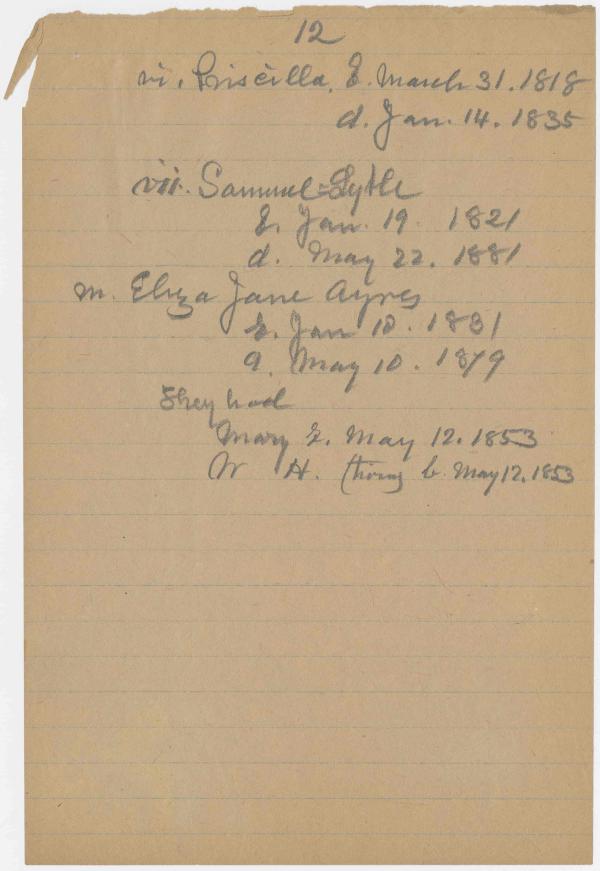 12
vi. Priscilla, b. March 31. 1818
d. Jan. 14. 1835
vii. Samuel Lytle
b. Jan. 19. 1821
d. May 22. 1881
m. Eliza Jane Ayres
b. Jan 18. 1831
d. May 10. 1879
They had
Mary b. May 12. 1853
W H. b. May 12. 1853